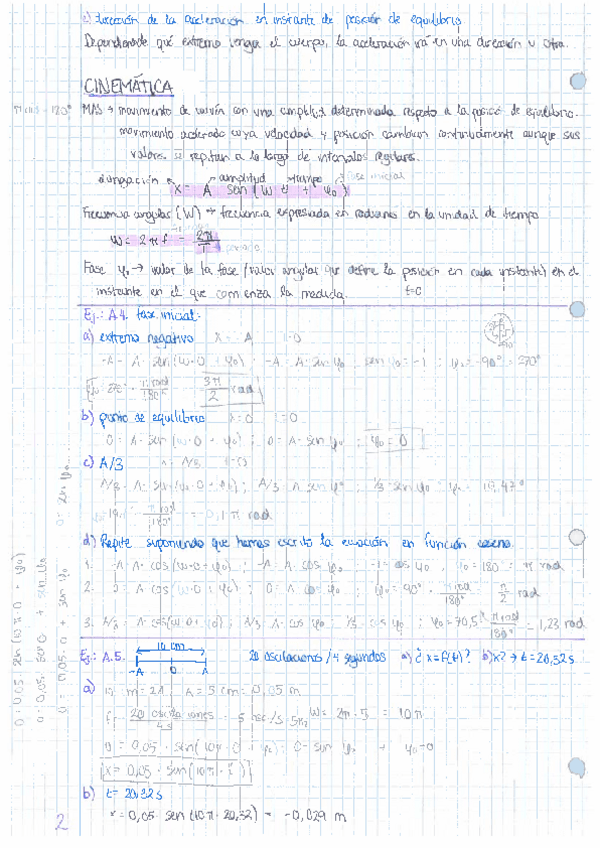 c) Dirección de la aceleración en instante de posición de equilibrio.
Dependiendo de qué extremo venga el cuerpo, la aceleración irá en una dirección u otra.
CINEMÁTICA
MAS → movimiento de vaivén con una amplitud determinada respecto a la posición de equilibrio.
movimiento acelerado cuya velocidad y posición cambian continuamente aunque sus
valores se repitan a lo largo de intervalos regulares.
elongación amplitud tiempo fase inicial
x = A sen (W t + φ0)
Frecuencia angular (W) → frecuencia expresada en radianes en la unidad de tiempo
W = 2πf = 2π/T
Fase φ0 → valor de la fase (valor angular que define la posición en cada instante) en el
instante en el que comienza la medida. t=0
Ej.: A.4. fase inicial.
a) extremo negativo x = -A t=0
-A = A · sen (w·0 + φ0) ; -A = A · sen φ0 ; sen φ0 = -1 ; φ0 = -90° = 270°
270 · π rad/180° = 3π/2 rad
b) punto de equilibrio x=0 t=0
0 = A · sen (w·0 + φ0) ; 0 = A · sen φ0 ; φ0 = 0
c) A/3 x = A/3 t=0
A/3 = A · sen (w·0 + φ0) ; A/3 = A sen φ0 ; 1/3 = sen φ0 ; φ0 = 19,47°
π rad/180° = 0,1 π rad
d) Repite suponiendo que hemos escrito la ecuación en función coseno.
1. -A = A · cos (w·0 + φ0) ; -A = A · cos φ0 ; -1 = cos φ0 , φ0 = 180° = π rad
2. 0 = A cos (w·0 + φ0) ; 0 = A cos φ0 ; φ0 = 90° · π rad/180° = π/2 rad
3. A/3 = A · cos (w·0 + φ0) ; A/3 = A · cos φ0 ; 1/3 = cos φ0 ; φ0 = 70,5 · π rad/180° = 1,23 rad
Ej.: A.5. 10 cm -A 0 A 20 oscilaciones / 4 segundos a) ¿x=f(t)? b) x? → t=20,32 s
a) A = 5 cm = 0,05 m
f = 20 oscilaciones/4 s = 5 osc/s W = 2π · 5 = 10π
0 = 0,05 · sen (10π · 0 + φ0) ; 0 = sen φ0 → φ0 = 0
x = 0,05 · sen (10π · t)
b) t = 20,32 s
x = 0,05 · sen (10π · 20,32) = -0,029 m
2
0 = 0,05 · sen (10π · 0 + φ0)